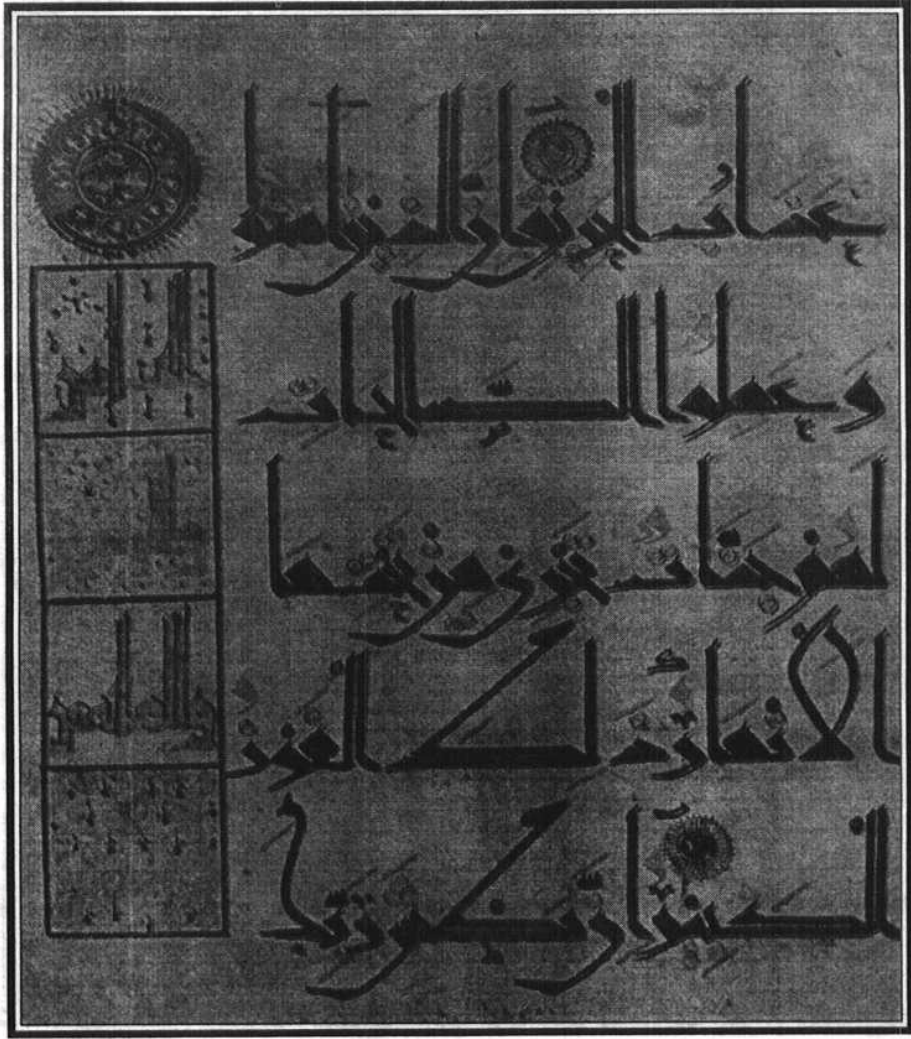 عَذَابُ الْحَرِيقِ إِنَّ الَّذِينَ آمَنُوا
وَعَمِلُوا الصَّالِحَاتِ
لَهُمْ جَنَّاتٌ تَجْرِي مِنْ تَحْتِهَا
الْأَنْهَارُ ذَٰلِكَ الْفَوْزُ
الْكَبِيرُ إِنَّ بَطْشَ رَبِّكَ